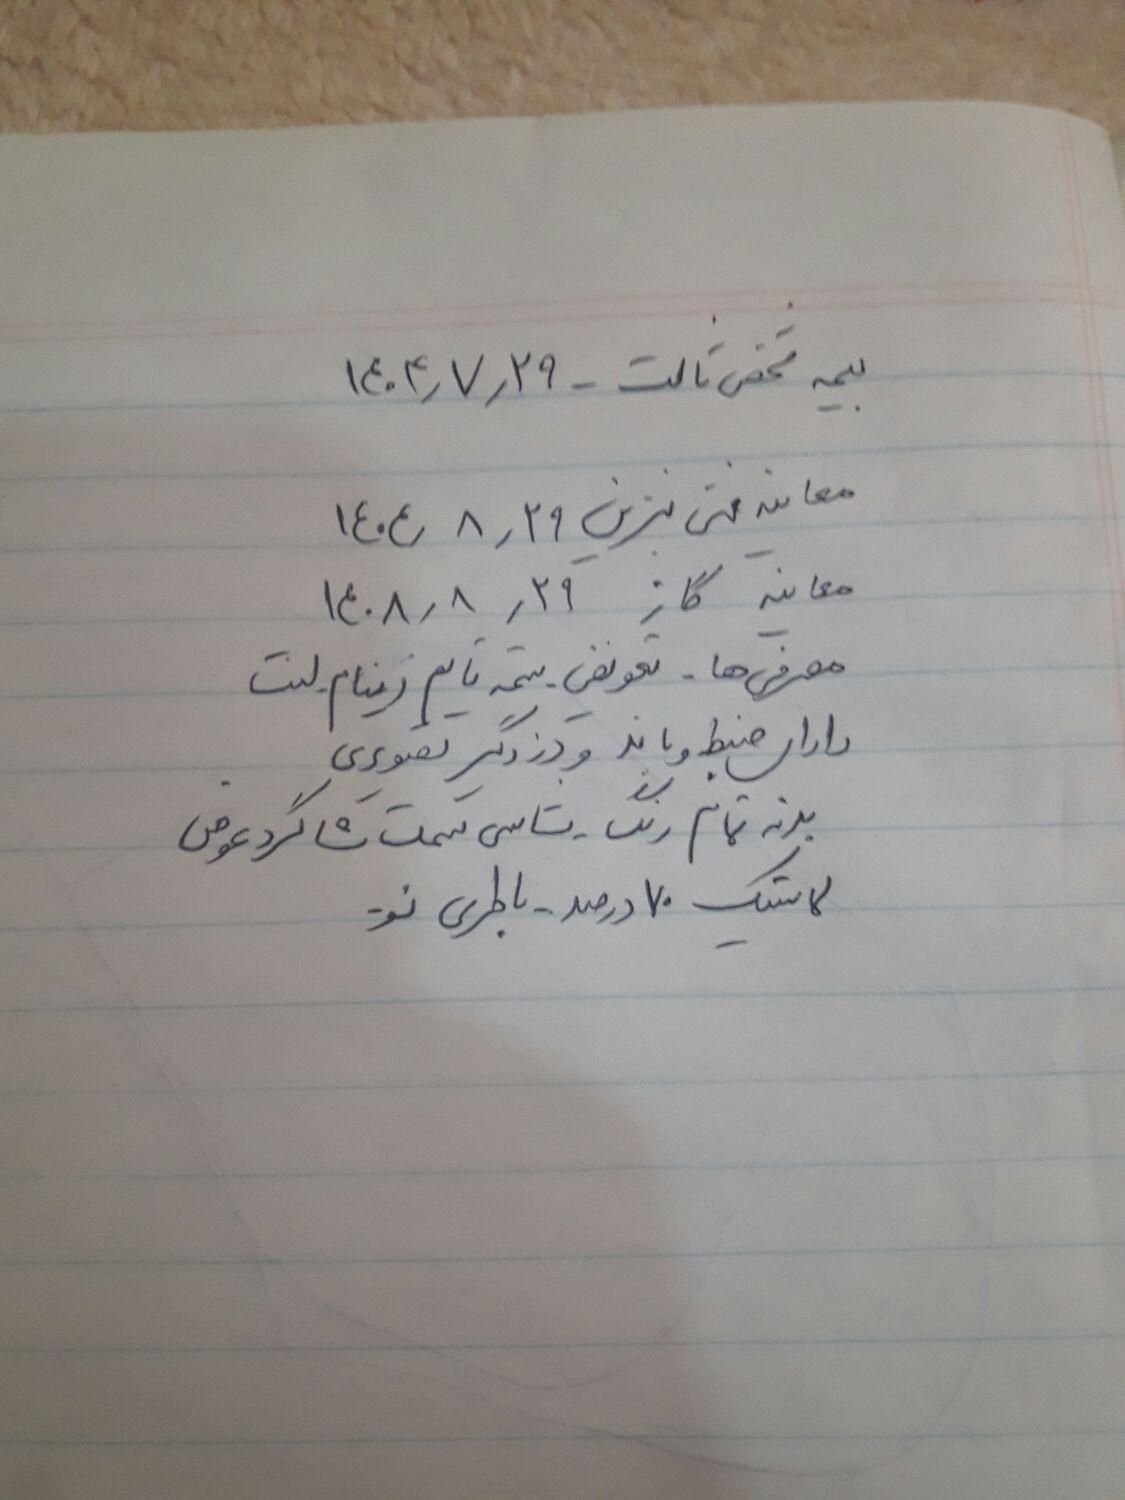 بیمه شخص ثالث - ۱۴۰۴٫۷٫۲۹
معاینه فنی بنزین ۱۴۰۴٫۸٫۲۹
معاینه گاز ۱۴۰۸٫۸٫۲۹
مصرفی‌ها - تعویض - تسمه تایم دینام - لنت
دارای ضبط و باند و دزدگیر تصویری
بدنه تمام رنگ - شاسی سمت شاگرد عوض
لاستیک ۷۰ درصد - باطری نو -